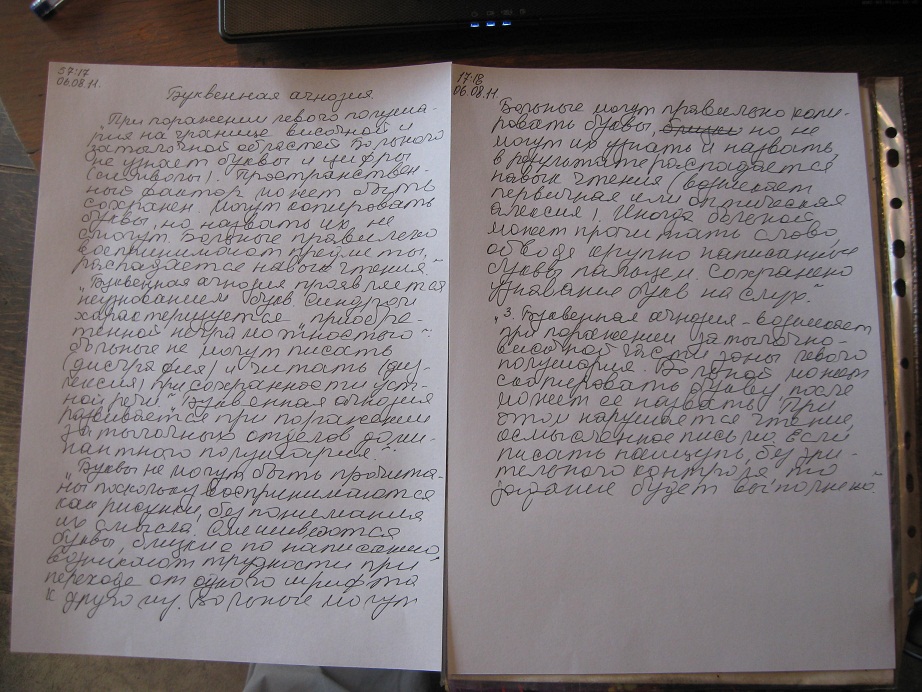 37:17
06.08.11.
Буквенная агнозия
"При поражении левого полуша-
рия на границе височной и
затылочной областей больного
не узнает буквы и цифры
(символы). Пространствен-
ный фактор может быть
сохранен. Могут копировать
буквы, но назвать их не
смогут. Больные правильно
воспринимают предметы,
распадается навык чтения."
"Буквенная агнозия проявляется
неузнованием букв. Синдром
характеризуется "приобре-
тенной неграмотностью"
больные не могут писать
(дисграфия) и читать (ди-
лексия) при сохранности уст-
ной речи." "Буквенная агнозия
развивается при поражении
затылочных отделов доми-
нантного полушария."
"Буквы не могут быть прочита-
ны поскольку воспринимаются
как рисунки, без понимания
их смысла. Смешиваются
буквы, близкие по написанию,
возникают трудности при
переходе от одного шрифта
к другому. Больные могут
17:18
06.08.11.
Больные могут правильно копи-
ровать буквы, но не
могут их узнать и назвать,
в результате распадается
навык чтения (возникает
первичная или оптическая
алексия). Иногда больной
может прочитать слово
обводя крупно написанные
буквы пальцем. Сохранено
узнавание букв на слух."
"3. Буквенная агнозия - возникает
при поражении затылочно-
височной части зоны левого
полушария. Больной может
скопировать букву, после
может ее назвать. При
этом нарушается чтение,
осмысленное письмо. Если
писать наощупь, без зри-
тельного контроля, то
задание будет выполнено."